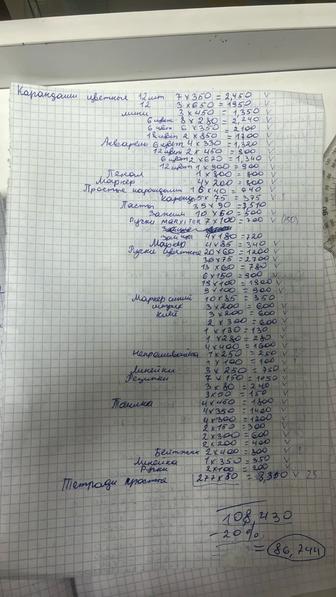 Карандаши цветные 12 шт 7 x 350 = 2,450 v
12 3 x 650 = 1950 v
мини 3 x 450 = 1,350 v
6 цвет 8 x 280 = 2,240 v
6 цвет 6 x 350 = 2,100 v
18 цвет 2 x 850 = 1700 v
Акварель 6 цвет 4 x 330 = 1,320 v
12 цвет 2 x 450 = 900 v
6 цвет 2 x 620 = 1,240 v
12 цвет 1 x 900 = 900 v
Пенал 1 x 800 = 800 v
Маркер 4 x 200 = 800 v
Простые карандаши 16 x 40 = 640 v
5 x 75 = 375 v
Пасты 39 x 90 = 3,510 v
10 x 50 = 500 v
Ручки 7 x 100 = 700 v (150)
4 x 180 = 720
Маркер 4 x 85 = 340 v
Ручки цветные 20 x 60 = 1200 v
30 x 75 = 2,700 v
13 x 60 = 780 v
6 x 150 = 900 v
18 x 100 = 1800 v
9 x 100 = 900 v
Маркер синий 10 x 85 = 850 v
3 x 200 = 600 v
клей 3 x 200 = 600 v
2 x 300 = 600 v
1 x 130 = 130 v
1 x 280 = 280 v
4 x 400 = 1600 v
1 x 250 = 250 v
1 x 100 = 100 v
Линейки 3 x 250 = 750 v
Резинки 7 x 150 = 1050 v
3 x 80 = 240 v
3 x 50 = 150 v
Папка 4 x 450 = 1800 v
4 x 350 = 1400 v
4 x 300 = 1200 v
2 x 150 = 300 v
2 x 300 = 600 v
2 x 200 = 400 v
2 x 400 = 800 v
Линейка 1 x 350 = 350 v
Ручки 2 x 100 = 200 v
Тетради простые 277 x 30 = 8,350 v 25
108,430
- 20%
= 86,744